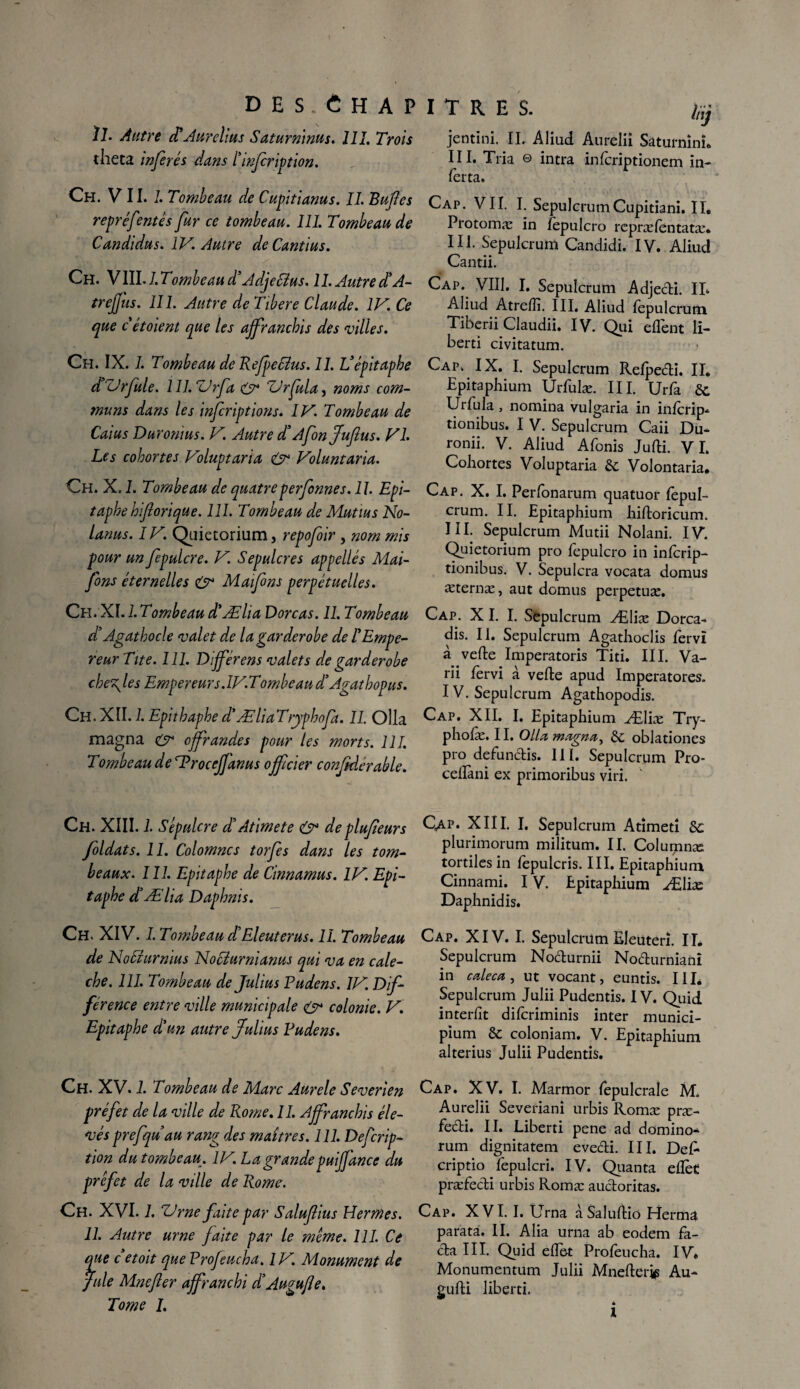 DES CHAPITRES. liij
II. Autre d'Aurelius Saturninus. III. Trois
theta inſerés dans l'inſcription.
CH. VII. I. Tombeau de Cupitianus. II. Buſtes
repréſentés ſur ce tombeau. III. Tombeau de
Candidus. IV. Autre de Cantius.
CH. VIII. I. Tombeau d'Adjectus. II. Autre d'A-
treſſus. III. Autre de Tibere Claude. IV. Ce
que c'étoient que les affranchis des villes.
CH. IX. I. Tombeau de Reſpectus. II. L'épitaphe
d'Urſule. III. Urſa & Urſula, noms com-
muns dans les inſcriptions. IV. Tombeau de
Caius Duronius. V. Autre d'Aſon Juſtus. VI.
Les cohortes Voluptaria & Voluntaria.
CH. X. I. Tombeau de quatre perſonnes. II. Epi-
taphe hiſtorique. III. Tombeau de Mutius No-
lanus. IV. Quietorium, repoſoir, nom mis
pour un ſepulcre. V. Sepulcres appellés Mai-
ſons éternelles & Maiſons perpétuelles.
CH. XI. I. Tombeau d'Ælia Dorcas. II. Tombeau
d'Agathocle valet de la garderobe de l'Empe-
reur Tite. III. Différens valets de garderobe
chez les Empereurs. IV. Tombeau d'Agathopus.
CH. XII. I. Epithaphe d'Ælia Tryphoſa. II. Olla
magna & offrandes pour les morts. III.
Tombeau de Proceſſanus officier conſidérable.
CH. XIII. I. Sépulcre d'Atimete & de pluſieurs
ſoldats. II. Colomnes torſes dans les tom-
beaux. III. Epitaphe de Cinnamus. IV. Epi-
taphe d'Ælia Daphnis.
CH. XIV. I. Tombeau d'Eleuterus. II. Tombeau
de Nocturnius Nocturnianus qui va en cale-
che. III. Tombeau de Julius Pudens. IV. Dif-
ference entre ville municipale & colonie. V.
Epitaphe d'un autre Julius Pudens.
CH. XV. I. Tombeau de Marc Aurele Severien
préfet de la ville de Rome. II. Affranchis éle-
vés preſqu'au rang des maîtres. III. Deſcrip-
tion du tombeau. IV. La grande puiſſance du
préfet de la ville de Rome.
CH. XVI. I. Urne faite par Saluſtius Hermes.
II. Autre urne faite par le même. III. Ce
que c'etoit que Proſeucha. IV. Monument de
Jule Mneſter affranchi d'Auguſte.
Tome I.
jentini. II. Aliud Aurelii Saturnini.
III. Tria Θ intra inſcriptionem in-
ſerta.
CAP. VII. I. Sepulcrum Cupitiani. II.
Protomæ in ſepulcro repræſentatæ.
III. Sepulcrum Candidi. IV. Aliud
Cantii.
CAP. VIII. I. Sepulcrum Adjecti. II.
Aliud Atreſſi. III. Aliud ſepulcrum
Tiberii Claudii. IV. Qui eſſent li-
berti civitatum.
CAP. IX. I. Sepulcrum Reſpecti. II.
Epitaphium Urſulæ. III. Urſa &
Urſula, nomina vulgaria in inſcrip-
tionibus. IV. Sepulcrum Caii Du-
ronii. V. Aliud Aſonis Juſti. VI.
Cohortes Voluptaria & Volontaria.
CAP. X. I. Perſonarum quatuor ſepul-
crum. II. Epitaphium hiſtoricum.
III. Sepulcrum Mutii Nolani. IV.
Quietorium pro ſepulcro in inſcrip-
tionibus. V. Sepulcra vocata domus
æternæ, aut domus perpetuæ.
CAP. XI. I. Sepulcrum Æliæ Dorca-
dis. II. Sepulcrum Agathoclis ſervi
à veſte Imperatoris Titi. III. Va-
rii ſervi à veſte apud Imperatores.
IV. Sepulcrum Agathopodis.
CAP. XII. I. Epitaphium Æliæ Try-
phoſæ. II. Olla magna, & oblationes
pro defunctis. III. Sepulcrum Pro-
ceſſani ex primoribus viri.
CAP. XIII. I. Sepulcrum Atimeti &
plurimorum militum. II. Columnæ
tortiles in ſepulcris. III. Epitaphium
Cinnami. IV. Epitaphium Æliæ
Daphnidis.
CAP. XIV. I. Sepulcrum Eleuteri. II.
Sepulcrum Nocturnii Nocturniani
in caleca, ut vocant, euntis. III.
Sepulcrum Julii Pudentis. IV. Quid
interſit diſcriminis inter munici-
pium & coloniam. V. Epitaphium
alterius Julii Pudentis.
CAP. XV. I. Marmor ſepulcrale M.
Aurelii Severiani urbis Romæ præ-
fecti. II. Liberti pene ad domino-
rum dignitatem evecti. III. Deſ-
criptio ſepulcri. IV. Quanta eſſet
præfecti urbis Romæ auctoritas.
CAP. XVI. I. Urna à Saluſtio Herma
parata. II. Alia urna ab eodem fa-
cta III. Quid eſſet Proſeucha. IV.
Monumentum Julii Mneſteris Au-
guſti liberti.
i